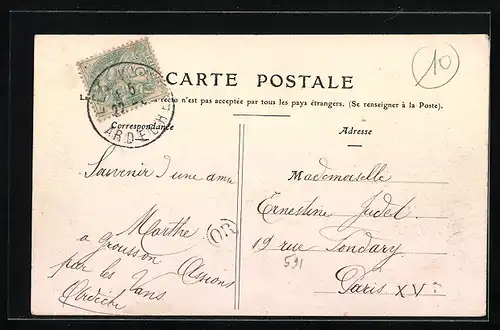 CARTE POSTALE
recto n'est pas acceptée par tous les pays étrangers. (Se renseigner à la Poste).
Correspondance
Adresse
ARDÈCHE
10
Souvenir d'une amie
Marthe
a grousson Assions
par les Vans
Ardèche
OR
Mademoiselle
Ernestine Judel
19 rue Fondary
531
Paris XVe